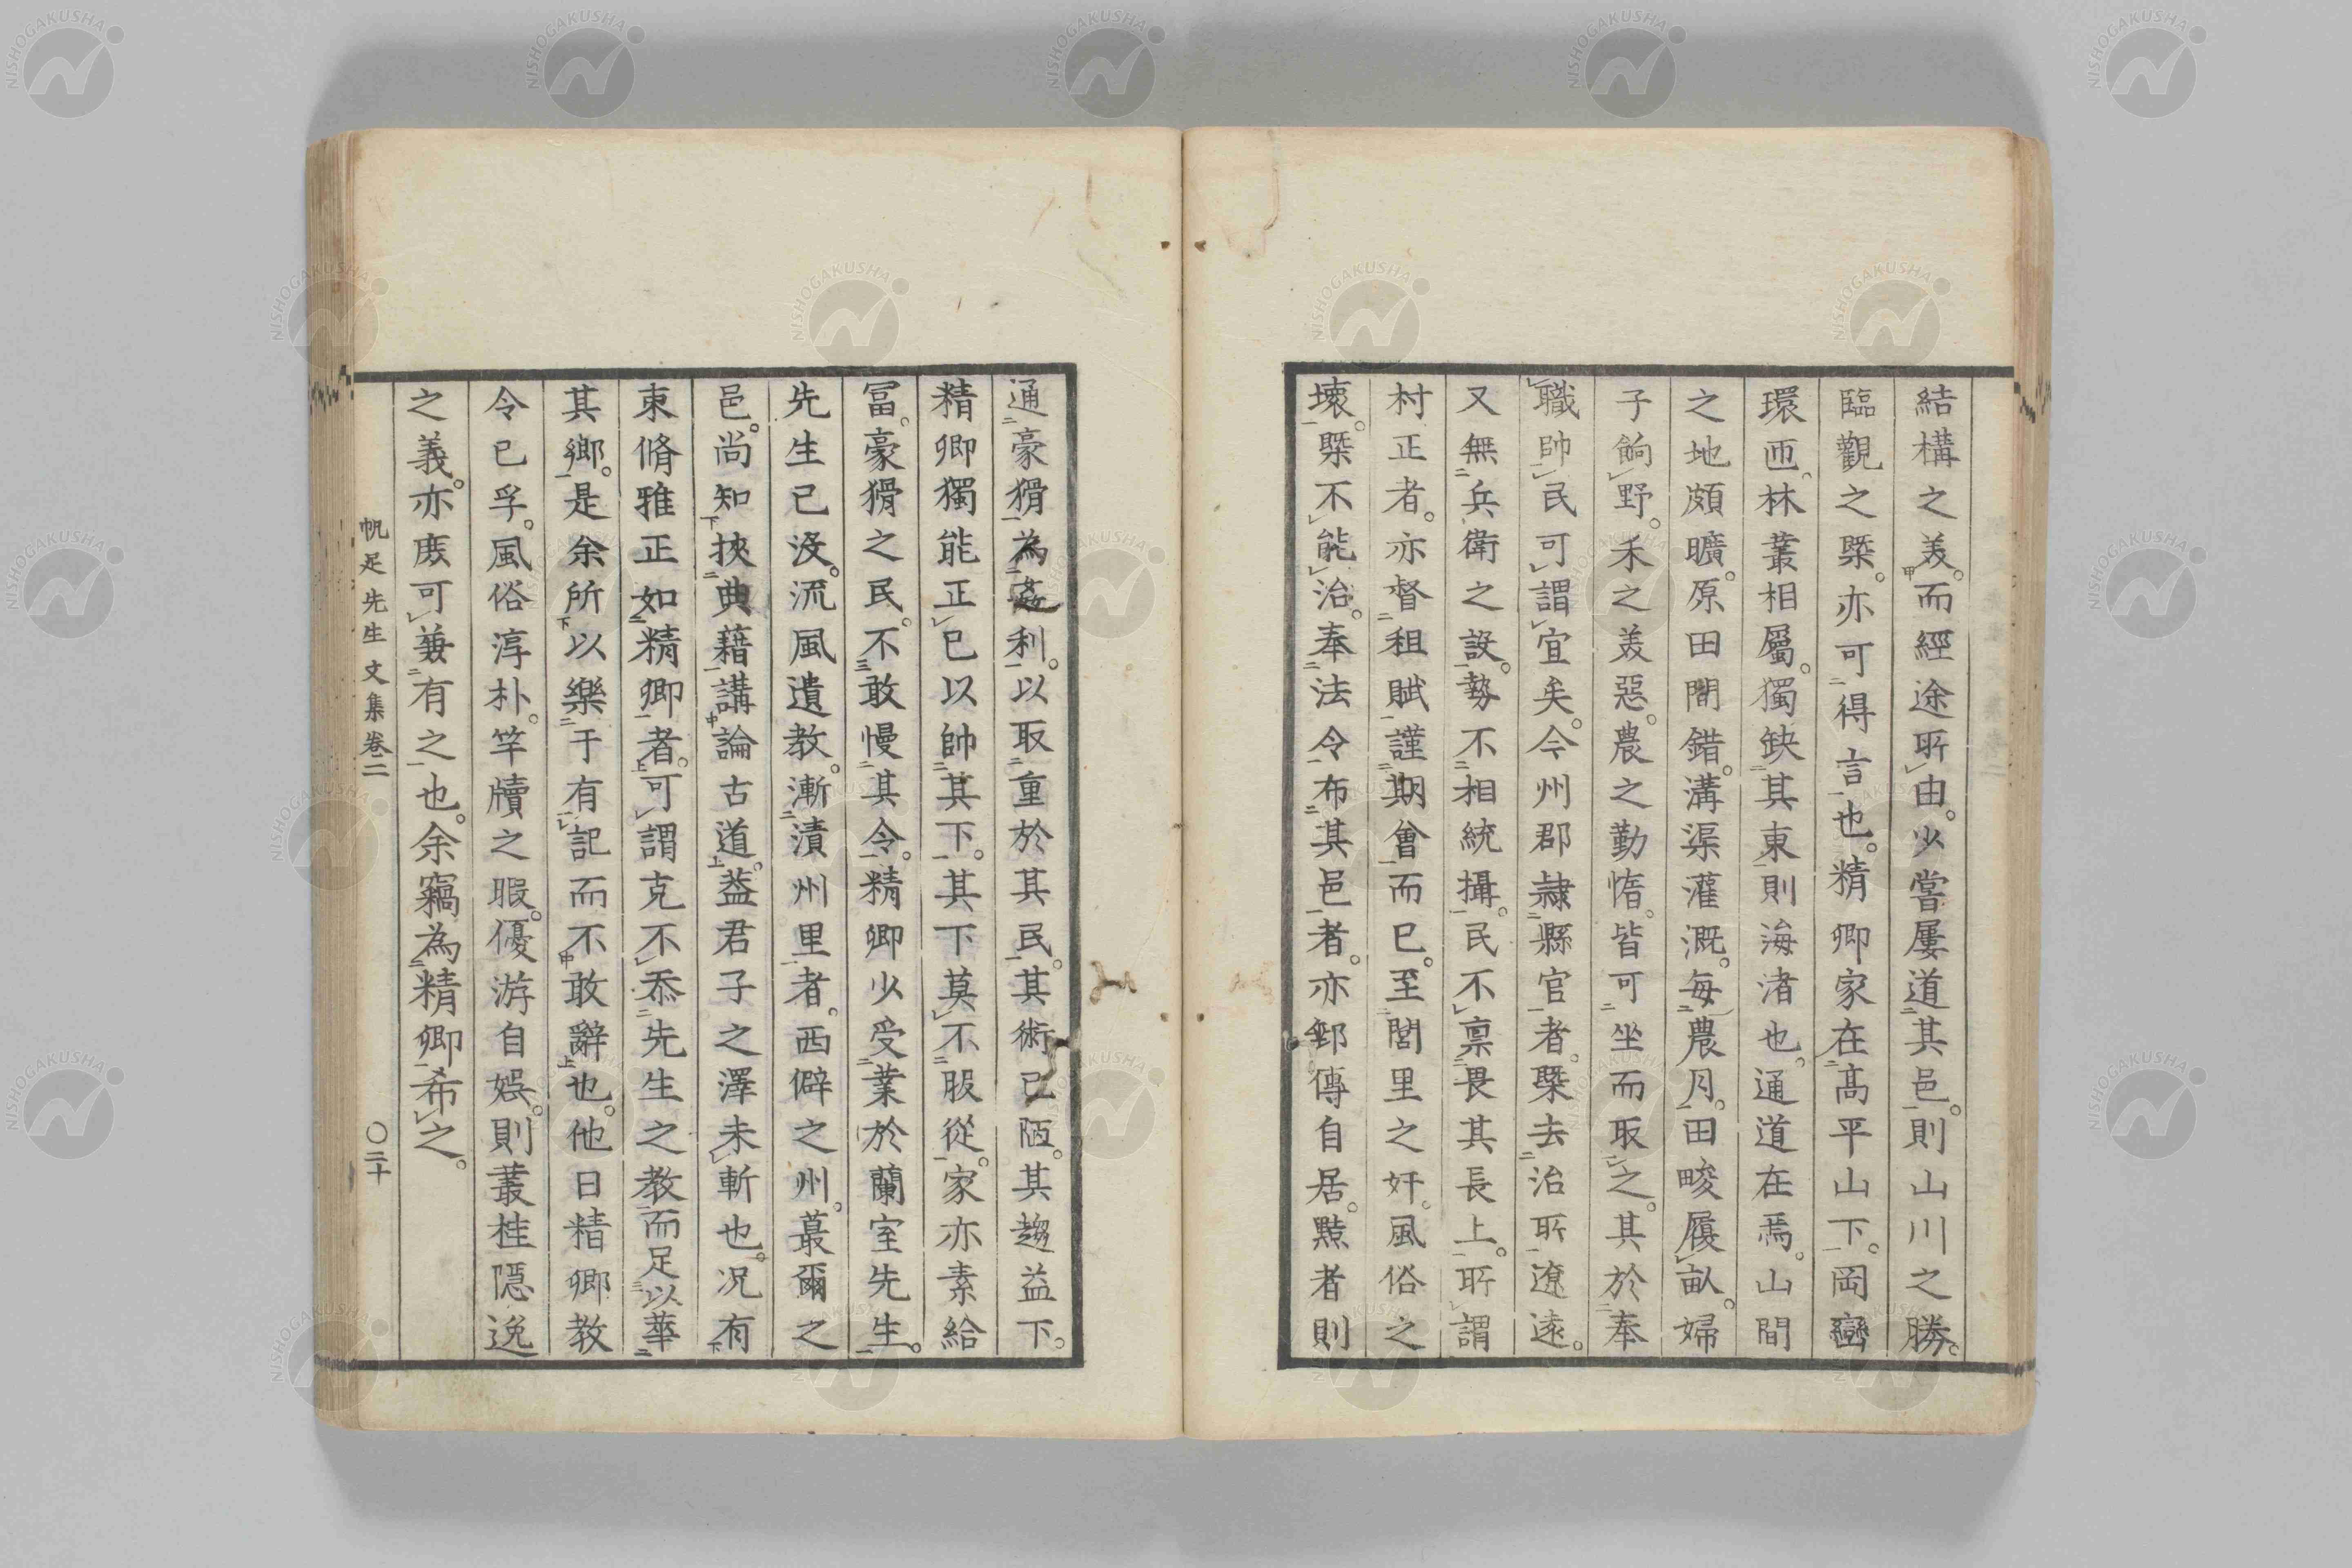 結構之美。而經途所由。少嘗屢道其邑。則山川之勝。
臨觀之槩。亦可得言也。精卿家在高平山下。岡巒
環匝。林叢相屬。獨缺其東。則海渚也。通道在焉。山間
之地頗曠。原田間錯。溝渠灌漑。每農月。田畯履畝。婦
子餉野。禾之美惡。農之勤惰。皆可坐而取之。其於奉
職帥民可謂宜矣。今州郡隷縣官者。槩去治所遼遠。
又無兵衛之設。勢不相統攝。民不禀畏其長上。所謂
村正者。亦督租賦謹期會而已。至閭里之奸。風俗之
壞。槩不能治。奉法令布其邑者。亦郵傳自居。黠者則
通豪猾為姦利。以取重於其民。其術已陋。其趨益下。
精卿獨能正已以帥其下。其下莫不服從。家亦素給
富。豪猾之民。不敢慢其令。精卿少受業於蘭室先生。
先生已沒。流風遺教。漸漬州里者。西僻之州。蕞爾之
邑。尚知挾典藉講論古道。益君子之澤未斬也。况有
束脩雅正如精卿者。可謂克不忝先生之教而足以華
其鄉。是余所以樂于有記而不敢辭也。他日精卿教
令已孚。風俗淳朴。竿牘之暇。優游自娛。則叢桂隱逸
之義。亦庻可兼有之也。余竊為精卿希之。
帆足先生文集卷二
〇二十
NISHOGAKUSHA